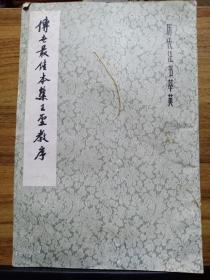 历代法书萃英
傳世最佳本集王聖教序